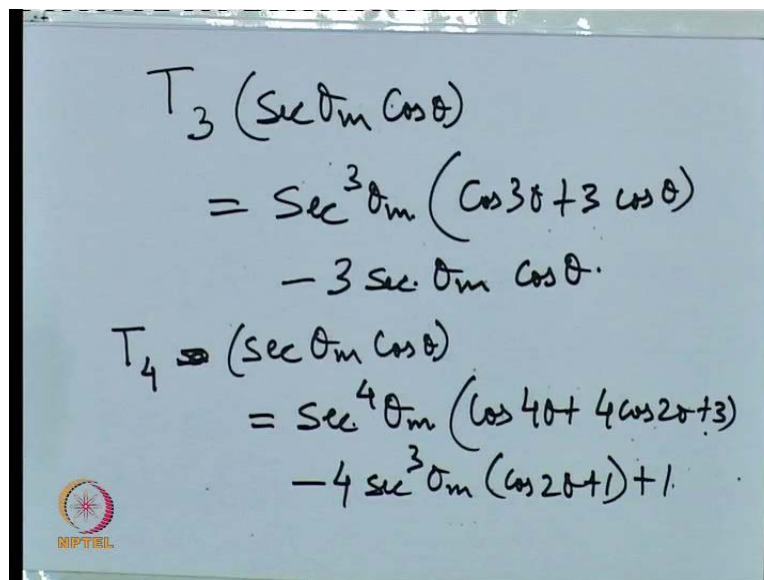 T₃ (Sec θm Cos θ)
= Sec³ θm (Cos 3θ + 3 cos θ)
− 3 sec. θm cos θ.
T₄ (sec θm Cos θ)
= Sec.⁴ θm (Cos 4θ + 4 cos 2θ + 3)
− 4 sec³ θm (cos 2θ + 1) + 1.
NPTEL